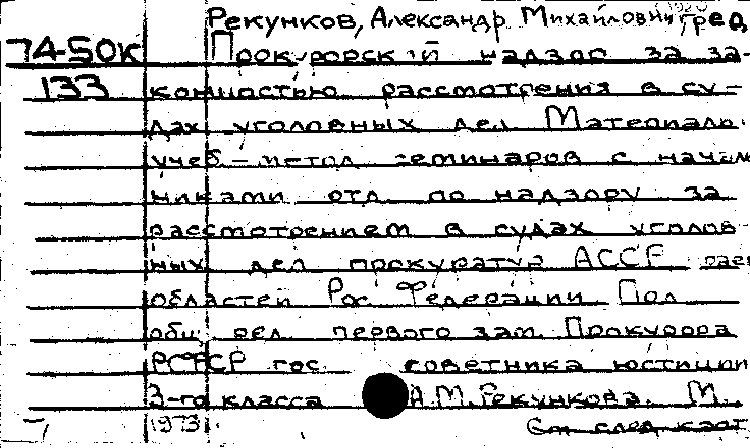 Рекунков, Александр Михайлович, ред
74-50к Прокурорский надзор за за-
133 конностью рассмотрения в су-
дах уголовных дел Материалы
учеб.-метод. семинаров с началь
никами отд. по надзору за
рассмотрением в судах уголов-
ных дел прокуратур АССР
областей Рос Федерации Под
общ ред. первого зам Прокурора
РСФСР гос. советника юстиции
3-го класса А.М.Рекункова. М.,
1973
См след карт